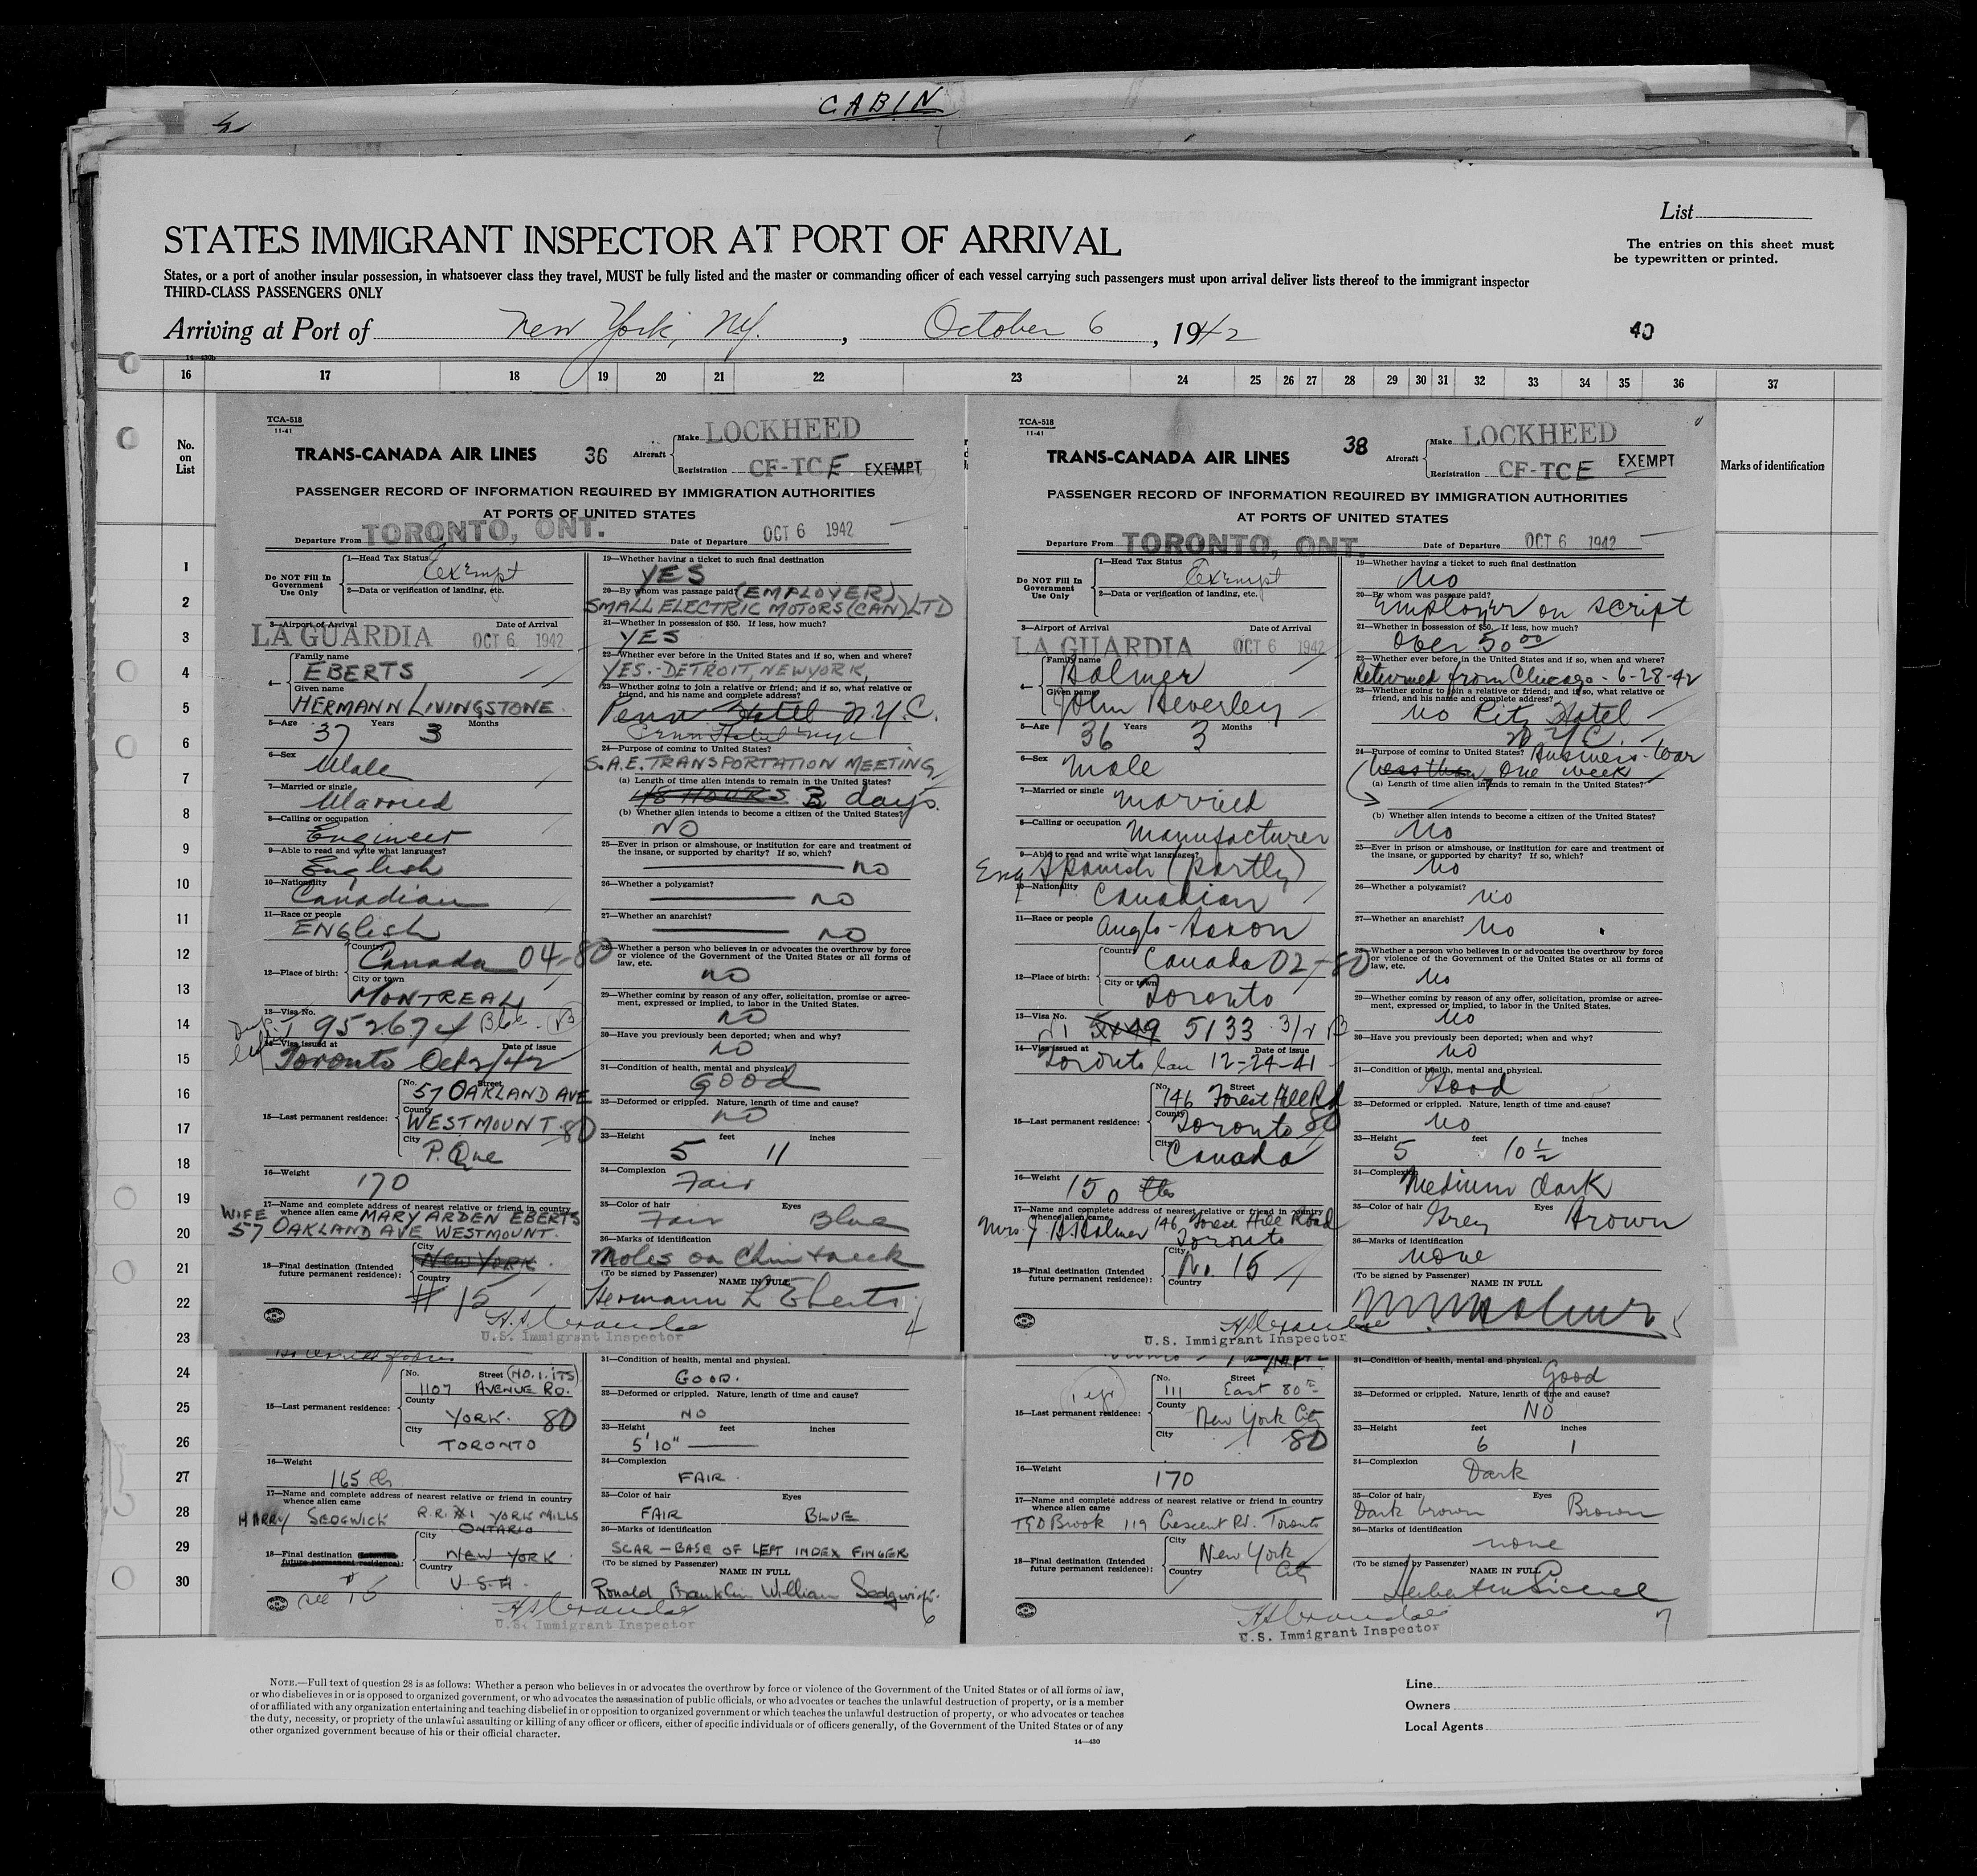 CABIN
List
STATES IMMIGRANT INSPECTOR AT PORT OF ARRIVAL
The entries on this sheet must
be typewritten or printed.
States, or a port of another insular possession, in whatsoever class they travel, MUST be fully listed and the master or commanding officer of each vessel carrying such passengers must upon arrival deliver lists thereof to the immigrant inspector
THIRD-CLASS PASSENGERS ONLY
Arriving at Port of New York, N.Y., October 6, 1942
40
14-430b
16 17 18 19 20 21 22 23 24 25 26 27 28 29 30 31 32 33 34 35 36 37
No.
on
List
Marks of identification
1
2
3
4
5
6
7
8
9
10
11
12
13
14
15
16
17
18
19
20
21
22
23
24
25
26
27
28
29
30
TCA-518
11-41
TRANS-CANADA AIR LINES 36 Aircraft Make LOCKHEED
Registration CF-TCE EXEMPT
PASSENGER RECORD OF INFORMATION REQUIRED BY IMMIGRATION AUTHORITIES
AT PORTS OF UNITED STATES
Departure From TORONTO, ONT. Date of Departure OCT 6 1942
Do NOT Fill In
Government
Use Only
1—Head Tax Status
Exempt
2—Data or verification of landing, etc.
3—Airport of Arrival Date of Arrival
LA GUARDIA OCT 6 1942
4— Family name
EBERTS
Given name
HERMANN LIVINGSTONE
5—Age Years Months
37 3
6—Sex
Male
7—Married or single
Married
8—Calling or occupation
Engineer
9—Able to read and write what languages?
English
10—Nationality
Canadian
11—Race or people
ENGlish
12—Place of birth: Country
Canada 04-80
City or town
MONTREAL
13—Visa No.
952674
14—Visa issued at Date of issue
Toronto Oct 2/42
15—Last permanent residence: No. Street
57 OAKLAND AVE
County
WESTMOUNT 80
City
P. Que
16—Weight
170
17—Name and complete address of nearest relative or friend in country
whence alien came MARY ARDEN EBERTS
WIFE
57 OAKLAND AVE WESTMOUNT.
18—Final destination (Intended
future permanent residence): City
NEW YORK
Country
# 15
19—Whether having a ticket to such final destination
YES
20—By whom was passage paid? (EMPLOYER)
SMALL ELECTRIC MOTORS (CAN) LTD
21—Whether in possession of $50. If less, how much?
YES
22—Whether ever before in the United States and if so, when and where?
YES.- DETROIT, NEW YORK,
23—Whether going to join a relative or friend; and if so, what relative or
friend, and his name and complete address?
Penn Hotel N.Y.C.
Penn Hotel nyc
24—Purpose of coming to United States?
S.A.E. TRANSPORTATION MEETING
(a) Length of time alien intends to remain in the United States?
48 HOURS 3 days.
(b) Whether alien intends to become a citizen of the United States?
NO
25—Ever in prison or almshouse, or institution for care and treatment of
the insane, or supported by charity? If so, which?
no
26—Whether a polygamist?
no
27—Whether an anarchist?
no
28—Whether a person who believes in or advocates the overthrow by force
or violence of the Government of the United States or all forms of
law, etc.
no
29—Whether coming by reason of any offer, solicitation, promise or agree-
ment, expressed or implied, to labor in the United States.
NO
30—Have you previously been deported; when and why?
NO
31—Condition of health, mental and physical.
Good
32—Deformed or crippled. Nature, length of time and cause?
NO
33—Height feet inches
5 11
34—Complexion
Fair
35—Color of hair Eyes
Fair Blue
36—Marks of identification
Moles on Chin + neck
(To be signed by Passenger) NAME IN FULL
Hermann L Eberts
4
U.S. Immigrant Inspector
TCA-518
11-41
TRANS-CANADA AIR LINES 38 Aircraft Make LOCKHEED
Registration CF-TCE EXEMPT
PASSENGER RECORD OF INFORMATION REQUIRED BY IMMIGRATION AUTHORITIES
AT PORTS OF UNITED STATES
Departure From TORONTO, ONT. Date of Departure OCT 6 1942
Do NOT Fill In
Government
Use Only
1—Head Tax Status
Exempt
2—Data or verification of landing, etc.
3—Airport of Arrival Date of Arrival
LA GUARDIA OCT 6 1942
4— Family name
Holmer
Given name
John Beverley
5—Age Years Months
36 3
6—Sex
Male
7—Married or single Married
8—Calling or occupation Manufacturer
9—Able to read and write what languages?
Eng Spanish (partly)
10—Nationality
Canadian
11—Race or people Anglo-Saxon
12—Place of birth: Country
Canada 02-80
City or town
Toronto
13—Visa No.
5133 3/2
14—Visa issued at Date of issue
Toronto Can 12-24-41
15—Last permanent residence: No. Street
146 Forest Hill Rd
County
Toronto 80
City
Canada
16—Weight
150 lbs
17—Name and complete address of nearest relative or friend in country
whence alien came
Mrs J. B. Holmer 146 Forest Hill Road
Toronto
18—Final destination (Intended
future permanent residence): City
No. 15
Country
19—Whether having a ticket to such final destination
No
20—By whom was passage paid?
Employer on script
21—Whether in possession of $50. If less, how much?
Over 50.00
22—Whether ever before in the United States and if so, when and where?
Returned from Chicago - 6-28-42
23—Whether going to join a relative or friend; and if so, what relative or
friend, and his name and complete address?
No Ritz Hotel
N.Y.C.
24—Purpose of coming to United States? Business-War
less than one week
(a) Length of time alien intends to remain in the United States?
(b) Whether alien intends to become a citizen of the United States?
No
25—Ever in prison or almshouse, or institution for care and treatment of
the insane, or supported by charity? If so, which?
No
26—Whether a polygamist?
No
27—Whether an anarchist?
No
28—Whether a person who believes in or advocates the overthrow by force
or violence of the Government of the United States or all forms of
law, etc.
No
29—Whether coming by reason of any offer, solicitation, promise or agree-
ment, expressed or implied, to labor in the United States.
No
30—Have you previously been deported; when and why?
No
31—Condition of health, mental and physical.
Good
32—Deformed or crippled. Nature, length of time and cause?
No
33—Height feet inches
5 10 1/2
34—Complexion
Medium dark
35—Color of hair Eyes
Grey Brown
36—Marks of identification
none
(To be signed by Passenger) NAME IN FULL
5
U.S. Immigrant Inspector
15—Last permanent residence: No. Street (NO. 1. ITS)
1107 AVENUE RD.
County
YORK. 80
City
TORONTO
16—Weight
165 lbs
17—Name and complete address of nearest relative or friend in country
whence alien came
HARRY SEDGWICK R.R. #1 YORK MILLS
ONTARIO
18—Final destination (Intended
future permanent residence): City
NEW YORK
Country
U.S.A.
31—Condition of health, mental and physical.
GOOD.
32—Deformed or crippled. Nature, length of time and cause?
NO
33—Height feet inches
5'10"
34—Complexion
FAIR.
35—Color of hair Eyes
FAIR BLUE
36—Marks of identification
SCAR — BASE OF LEFT INDEX FINGER
(To be signed by Passenger) NAME IN FULL
Ronald Franklin William Sedgwick.
6
U.S. Immigrant Inspector
1 yr
15—Last permanent residence: No. Street
111 East 80th
County
New York City
City
80
16—Weight
170
17—Name and complete address of nearest relative or friend in country
whence alien came
TGD Brook 119 Crescent Rd. Toronto
18—Final destination (Intended
future permanent residence): City
New York
Country City
31—Condition of health, mental and physical.
Good
32—Deformed or crippled. Nature, length of time and cause?
NO
33—Height feet inches
6 1
34—Complexion
Dark
35—Color of hair Eyes
Dark brown Brown
36—Marks of identification
none
(To be signed by Passenger) NAME IN FULL
7
U.S. Immigrant Inspector
NOTE.—Full text of question 28 is as follows: Whether a person who believes in or advocates the overthrow by force or violence of the Government of the United States or of all forms of law,
or who disbelieves in or is opposed to organized government, or who advocates the assassination of public officials, or who advocates or teaches the unlawful destruction of property, or is a member
of or affiliated with any organization entertaining and teaching disbelief in or opposition to organized government or which teaches the unlawful destruction of property, or who advocates or teaches
the duty, necessity, or propriety of the unlawful assaulting or killing of any officer or officers, either of specific individuals or of officers generally, of the Government of the United States or of any
other organized government because of his or their official character.
14—430
Line
Owners
Local Agents